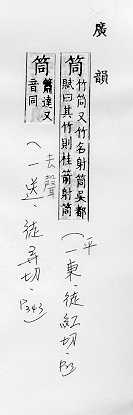 廣韻
筒
竹筒又竹名射筒吳都
賦曰其竹則桂箭射筒
平
(一東.徒紅切.
筒
簫達又
音同
去聲
(一送.徒弄切.P343)